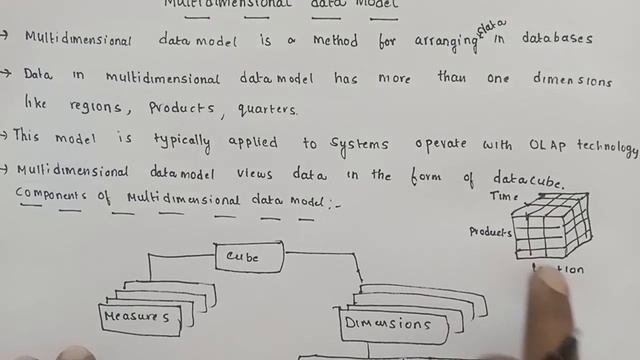 Multidimensional data Model
→ Multidimensional data model is a method for arranging data in databases
→ Data in multidimensional data model has more than one dimensions
like regions, products, quarters.
→ This model is typically applied to systems operate with OLAP technology
→ Multidimensional datamodel views data in the form of datacube.
Components of Multidimensional data model:-
Time
Products
Cube
Measures
Dimensions